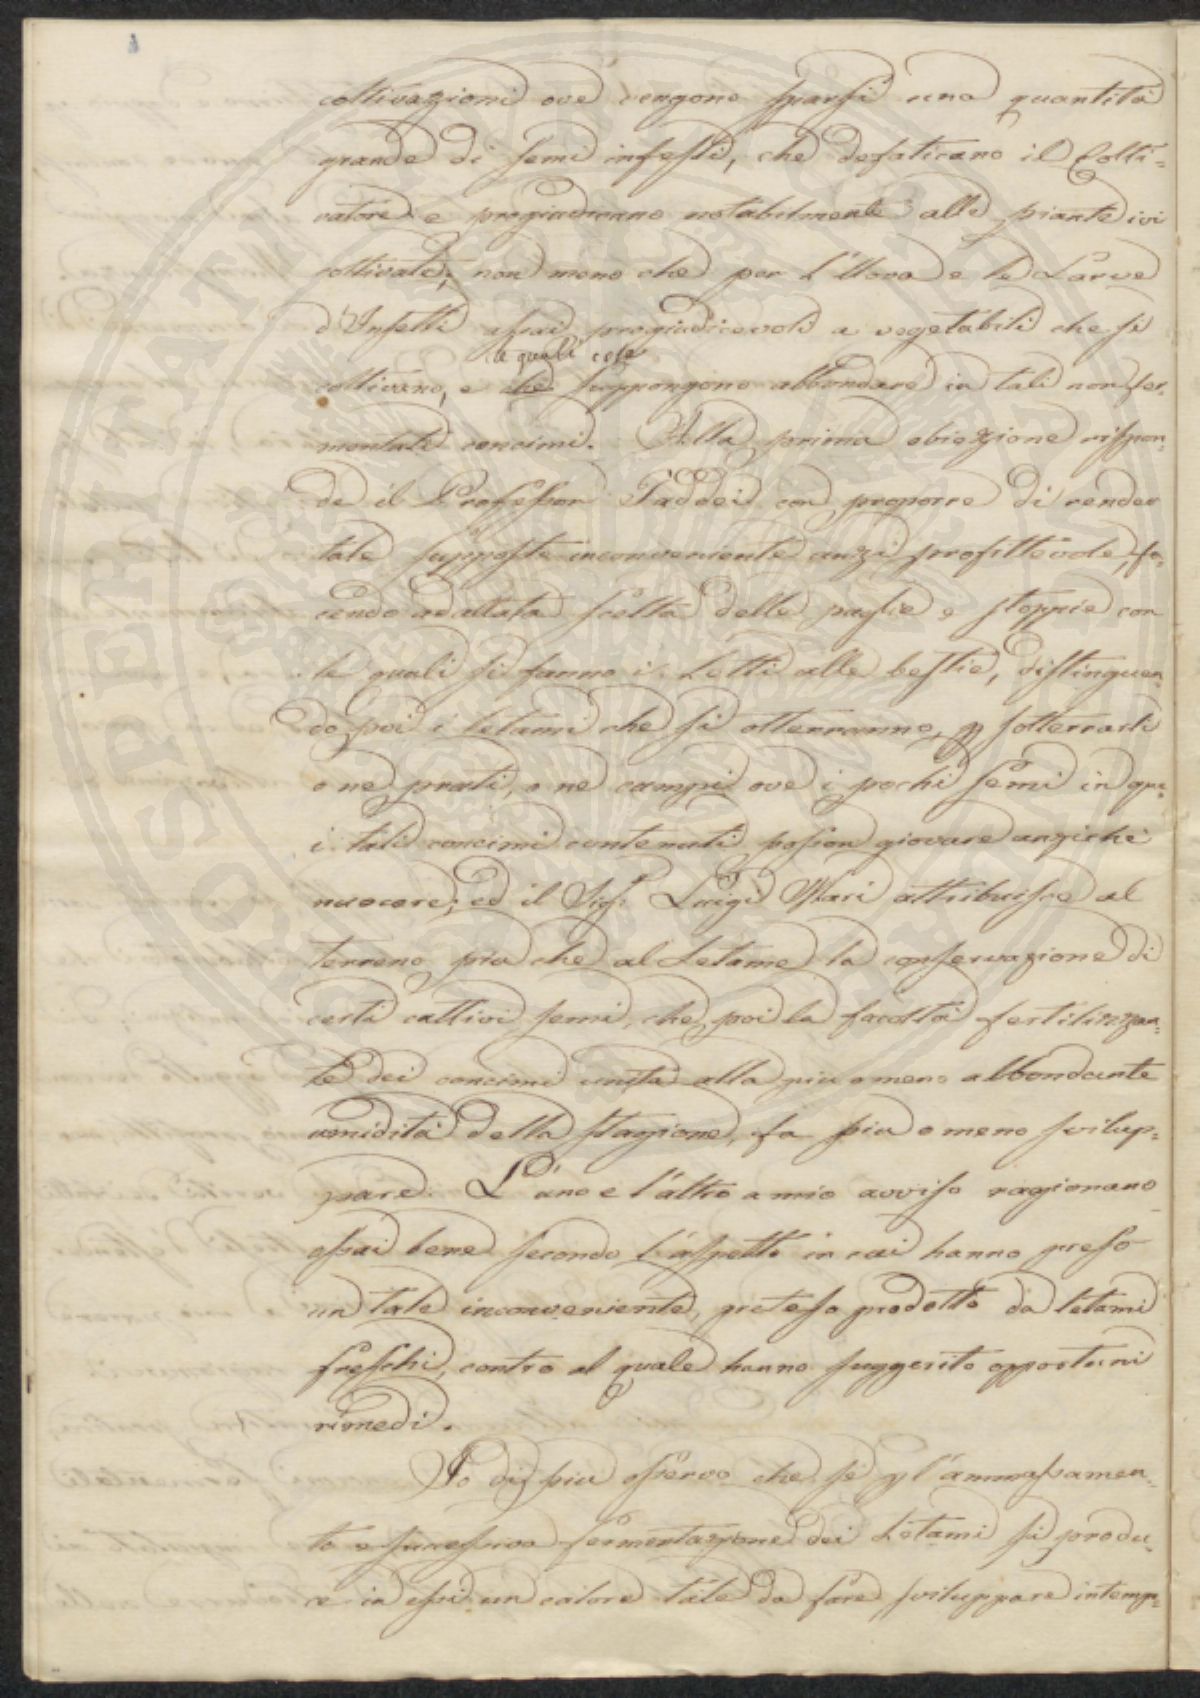 coltivazioni ove vengono sparsi una quantità
grande di semi infesti, che defaticano il Colti=
vatore e pregiudicano notabilmente alle piante ivi
coltivate; non meno che per l'Uova e le Larve
d'Insetti assai pregiudicevoli a vegetabili che si
le quali cose
coltivano, e che suppongono abbondare in tali non fer=
mentati concimi. Alla prima obiezione rispon=
de il Professor Taddei con proporre di render
tale supposto inconveniente anzi profittevole, fa=
cendo adattata scelta delle paglie e stoppie con
le quali si fanno i Letti alle bestie, distinguen=
do poi i letami che si otterranno, p sotterrarli
o ne prati, o ne campi ove i pochi semi in que=
i tali concimi contenuti posson giovare anziché
nuocere; ed il Sigr. Luigi Mari attribuisce al
terreno più che al Letame la conservazione di
certi cattivi semi, che poi la facoltà fertilizzan=
te dei concimi unita alla più o meno abbondante
umidità della stagione, fa più o meno svilup=
pare. L'uno e l'altro a mio avviso ragionano
assai bene secondo l'aspetto in cui hanno preso
un tale inconveniente, preteso prodotto da letami
freschi, contro al quale hanno suggerito opportuni
rimedi.
Io di più osservo che se p l'ammassamen=
to e successiva fermentazione dei Letami si produ=
ce in essi un calore tale da fare sviluppare intemp=